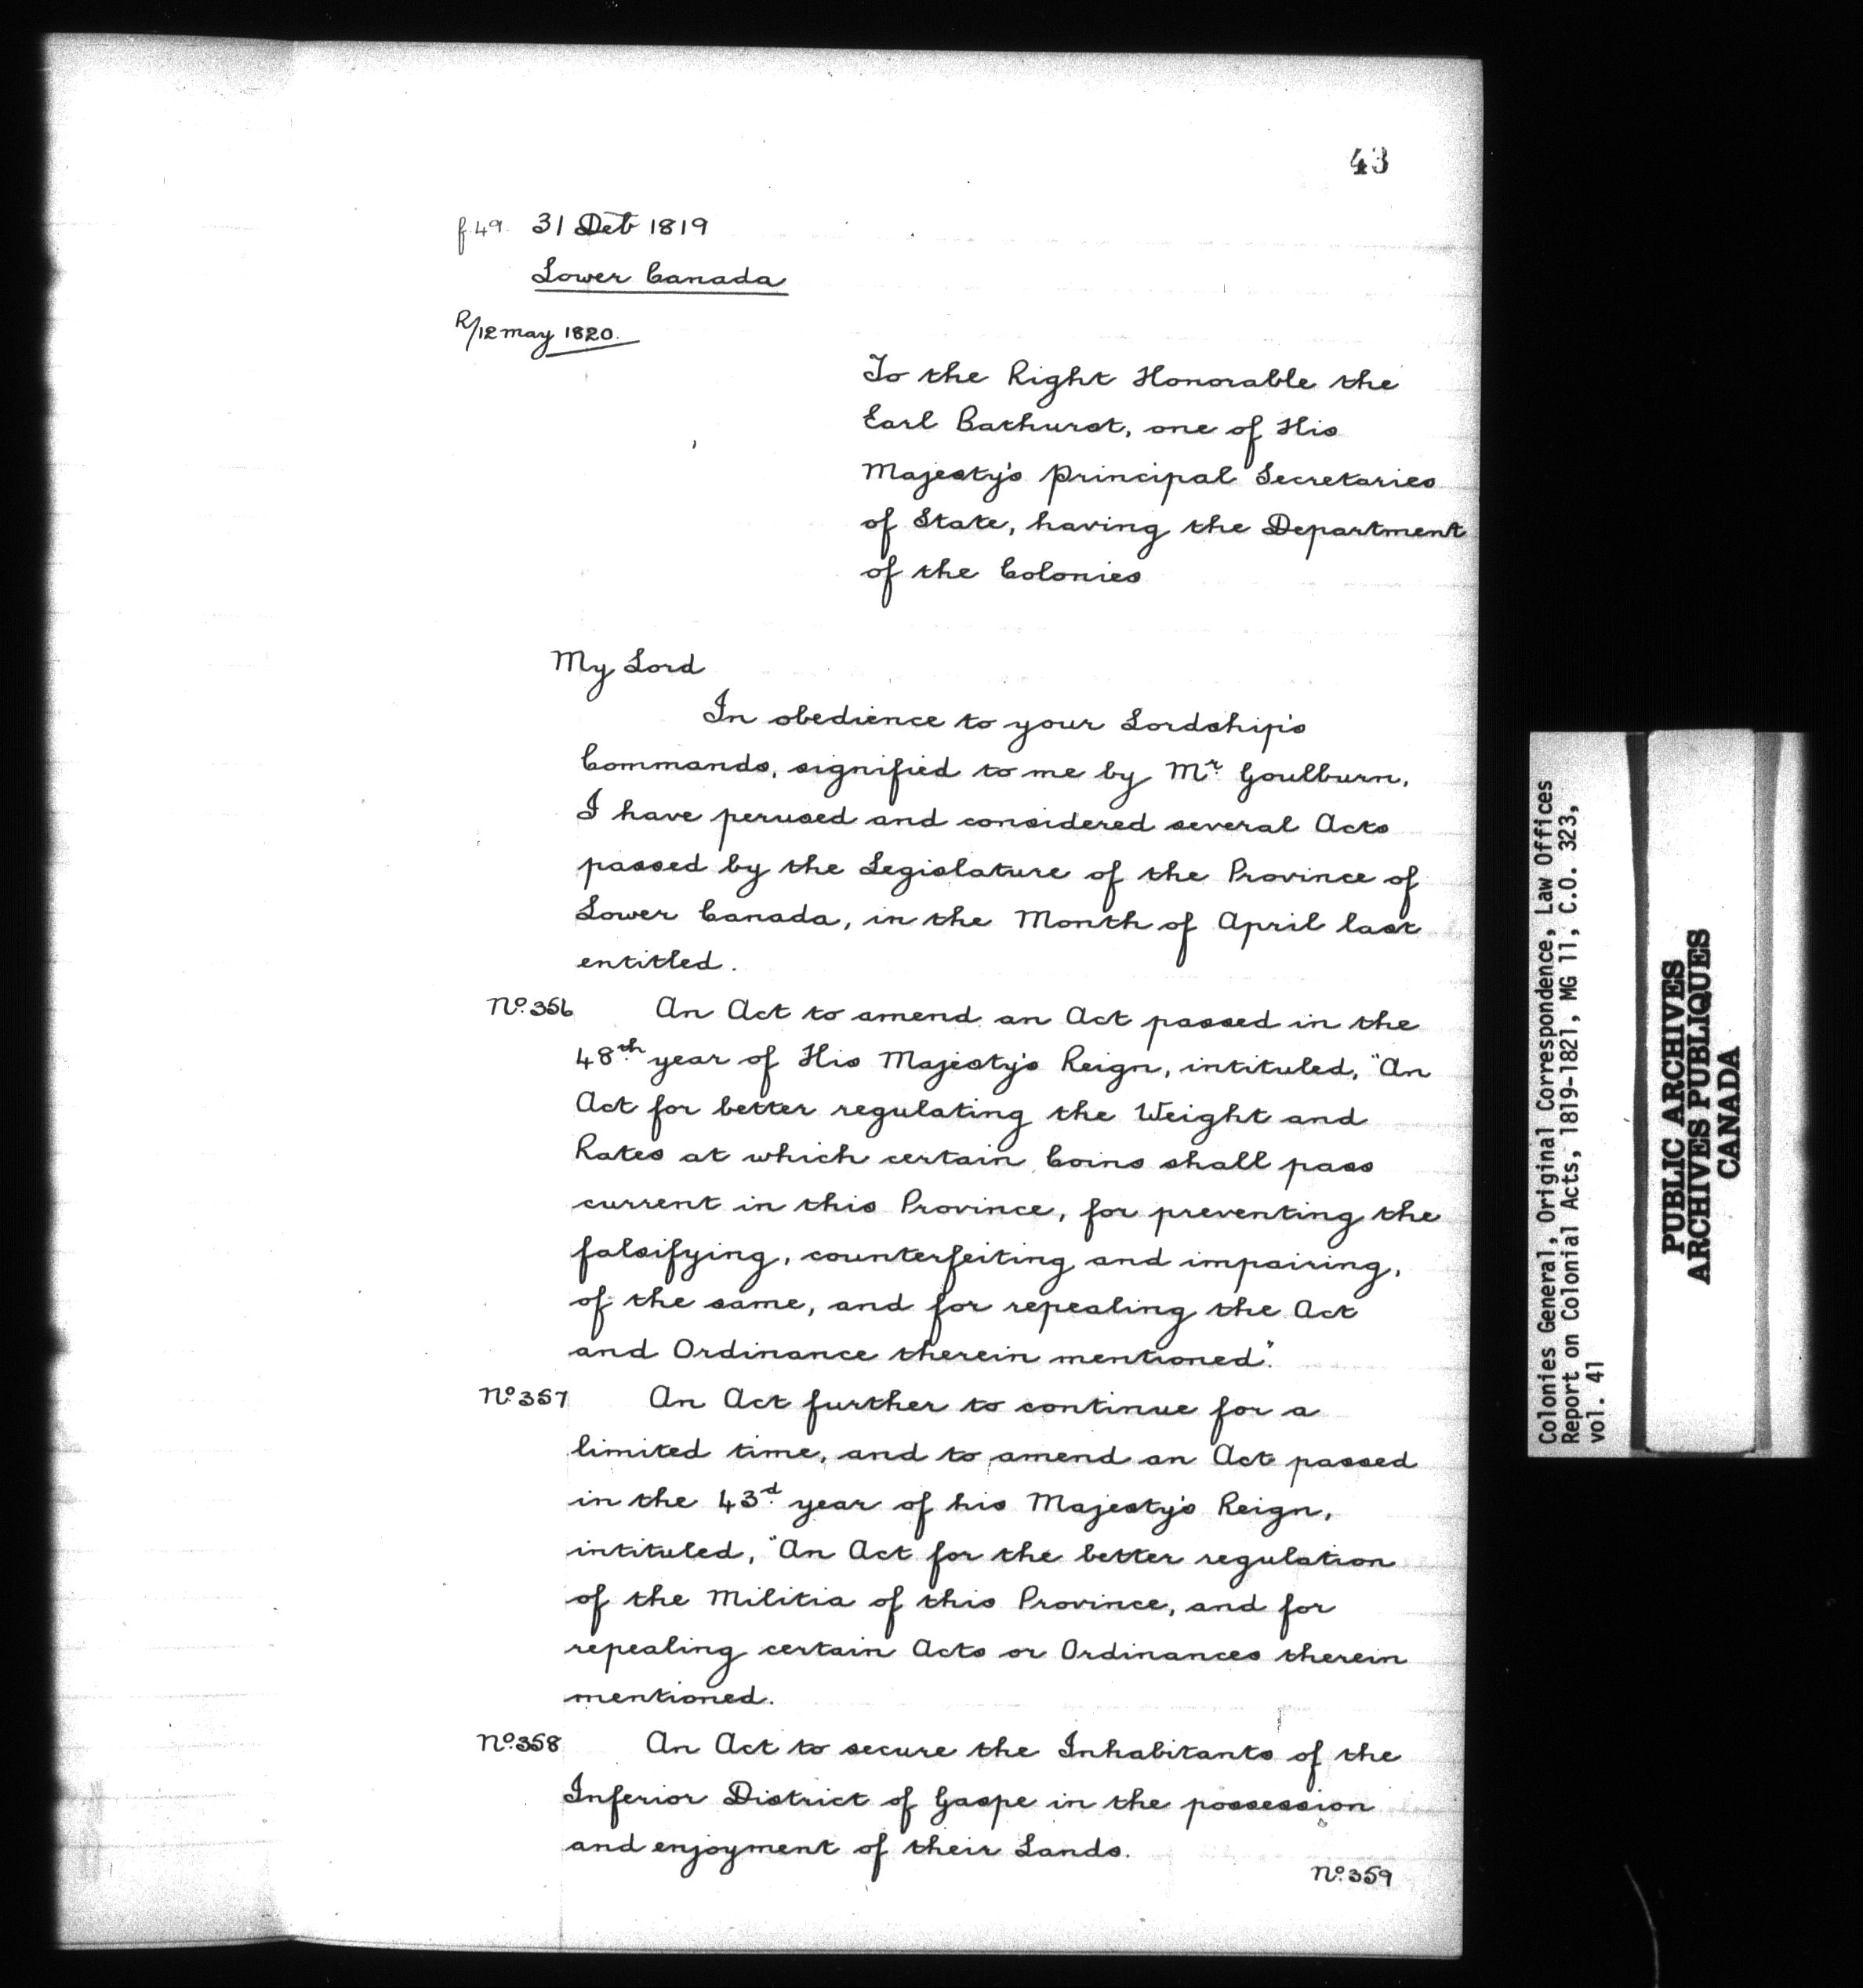 43
f 49. 31 Det 1819
Lower Canada
R/12 May 1820.
To the Right Honorable the
Earl Bathurst, one of His
Majesty's Principal Secretaries
of State, having the Department
of the Colonies
My Lord
In obedience to your Lordship's
Commands, signified to me by Mr. Goulburn,
I have perused and considered several Acts
passed by the Legislature of the Province of
Lower Canada, in the Month of April last
entitled.
No. 356 An Act to amend an Act passed in the
48th year of His Majesty's Reign, intituled, "An
Act for better regulating the Weight and
Rates at which certain Coins shall pass
current in this Province, for preventing the
falsifying, counterfeiting and impairing,
of the same, and for repealing the Act
and Ordinance therein mentioned".
No. 357 An Act further to continue for a
limited time, and to amend an Act passed
in the 43d year of his Majesty's Reign,
intituled, "An Act for the better regulation
of the Militia of this Province, and for
repealing certain Acts or Ordinances therein
mentioned.
No. 358 An Act to secure the Inhabitants of the
Inferior District of Gaspe in the possession
and enjoyment of their Lands.
No. 359
Colonies General, Original Correspondence, Law Offices
Report on Colonial Acts, 1819-1821, MG 11, C.O. 323,
vol. 41
PUBLIC ARCHIVES
ARCHIVES PUBLIQUES
CANADA